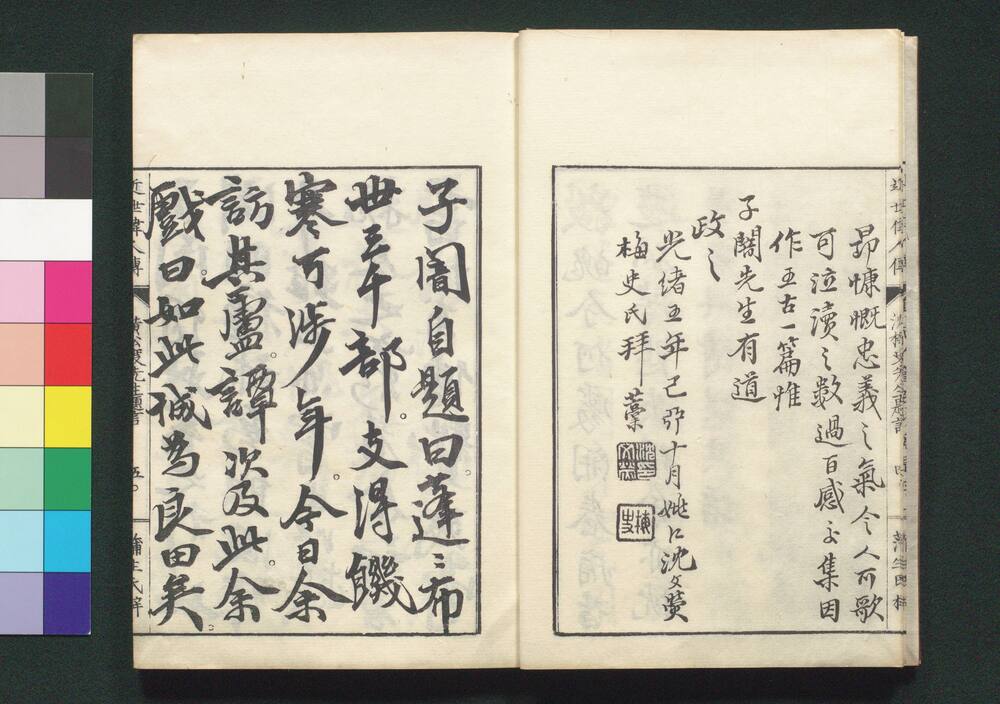 昂慷慨忠義之氣令人可歌
可泣讀之數過百感交集因
作五古一篇惟
子闇先生有道
政之
光緒五年己卯十月姚江沈文熒
梅史氏拜藁
子闇自題曰。蓬〻布
世三千部。支得饑
寒可涉年。今日余
訪其廬。譚次及此。余
戲曰。如此誠為良田矣。
近世偉人傳
五
蒲生氏梓
近世偉人傳
四
蒲生氏梓